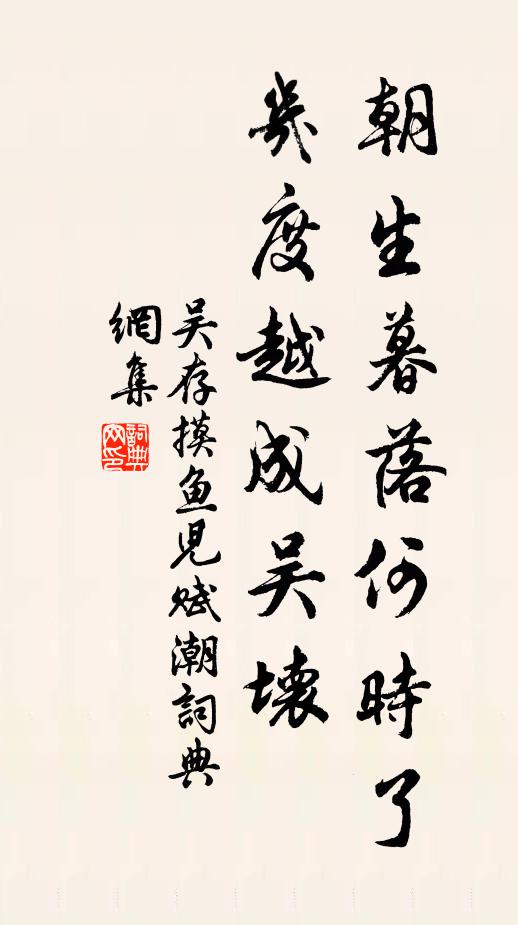 朝生暮落何時了
幾度越成吳壞
吴存摸鱼兒賦潮詞典
網集
詞典
网印